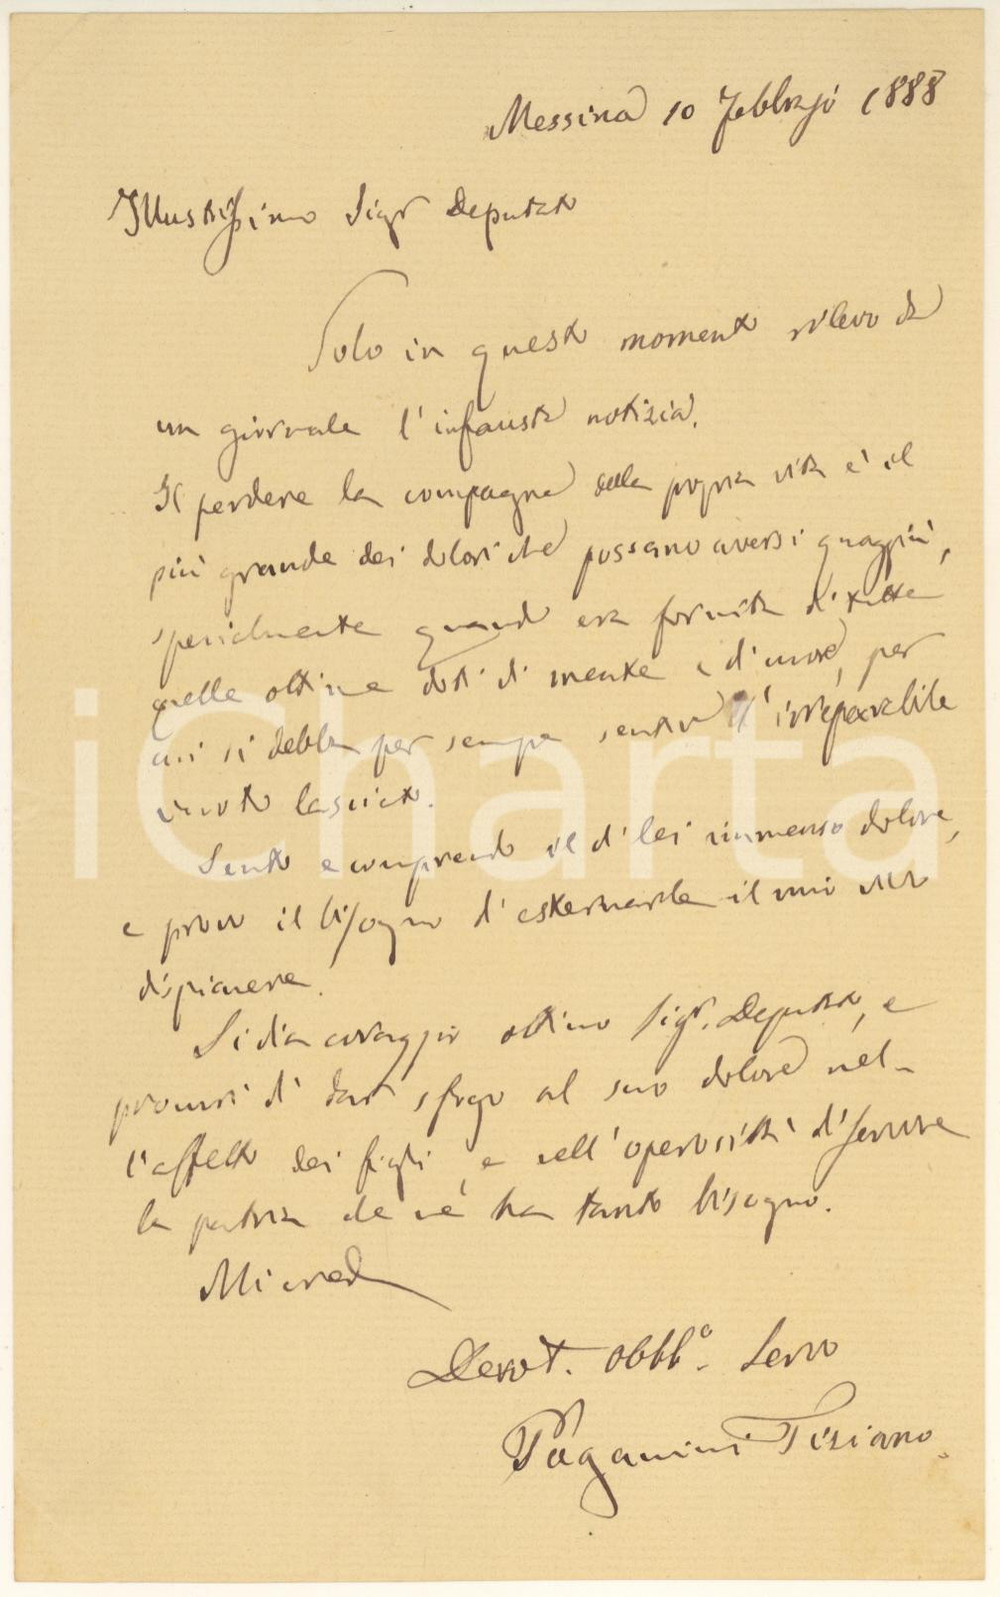 Messina 10 Febbrajo 1888
Illustrissimo Sigr Deputato
Solo in questo momento rilevo da
un giornale l'infausta notizia.
Il perdere la compagna della propria vita è il
più grande dei dolori che possano aversi quaggiù,
specialmente quando era fornita di tutte
quelle ottime doti di mente e di cuore, per
cui si debba per sempre sentire l'irreparabile
vuoto lasciato.
Sento e comprendo il di lei immenso dolore,
e provo il bisogno d'esternarle il mio vivo
dispiacere.
Si dia coraggio ottimo Sigr. Deputato, e
procuri di dar sfogo al suo dolore nel-
l'affetto dei figli, e nell'operosità di servire
la patria che ne ha tanto bisogno.
Mi creda
Devot. obbl.o Servo
Paganini Tiziano.
iCharta